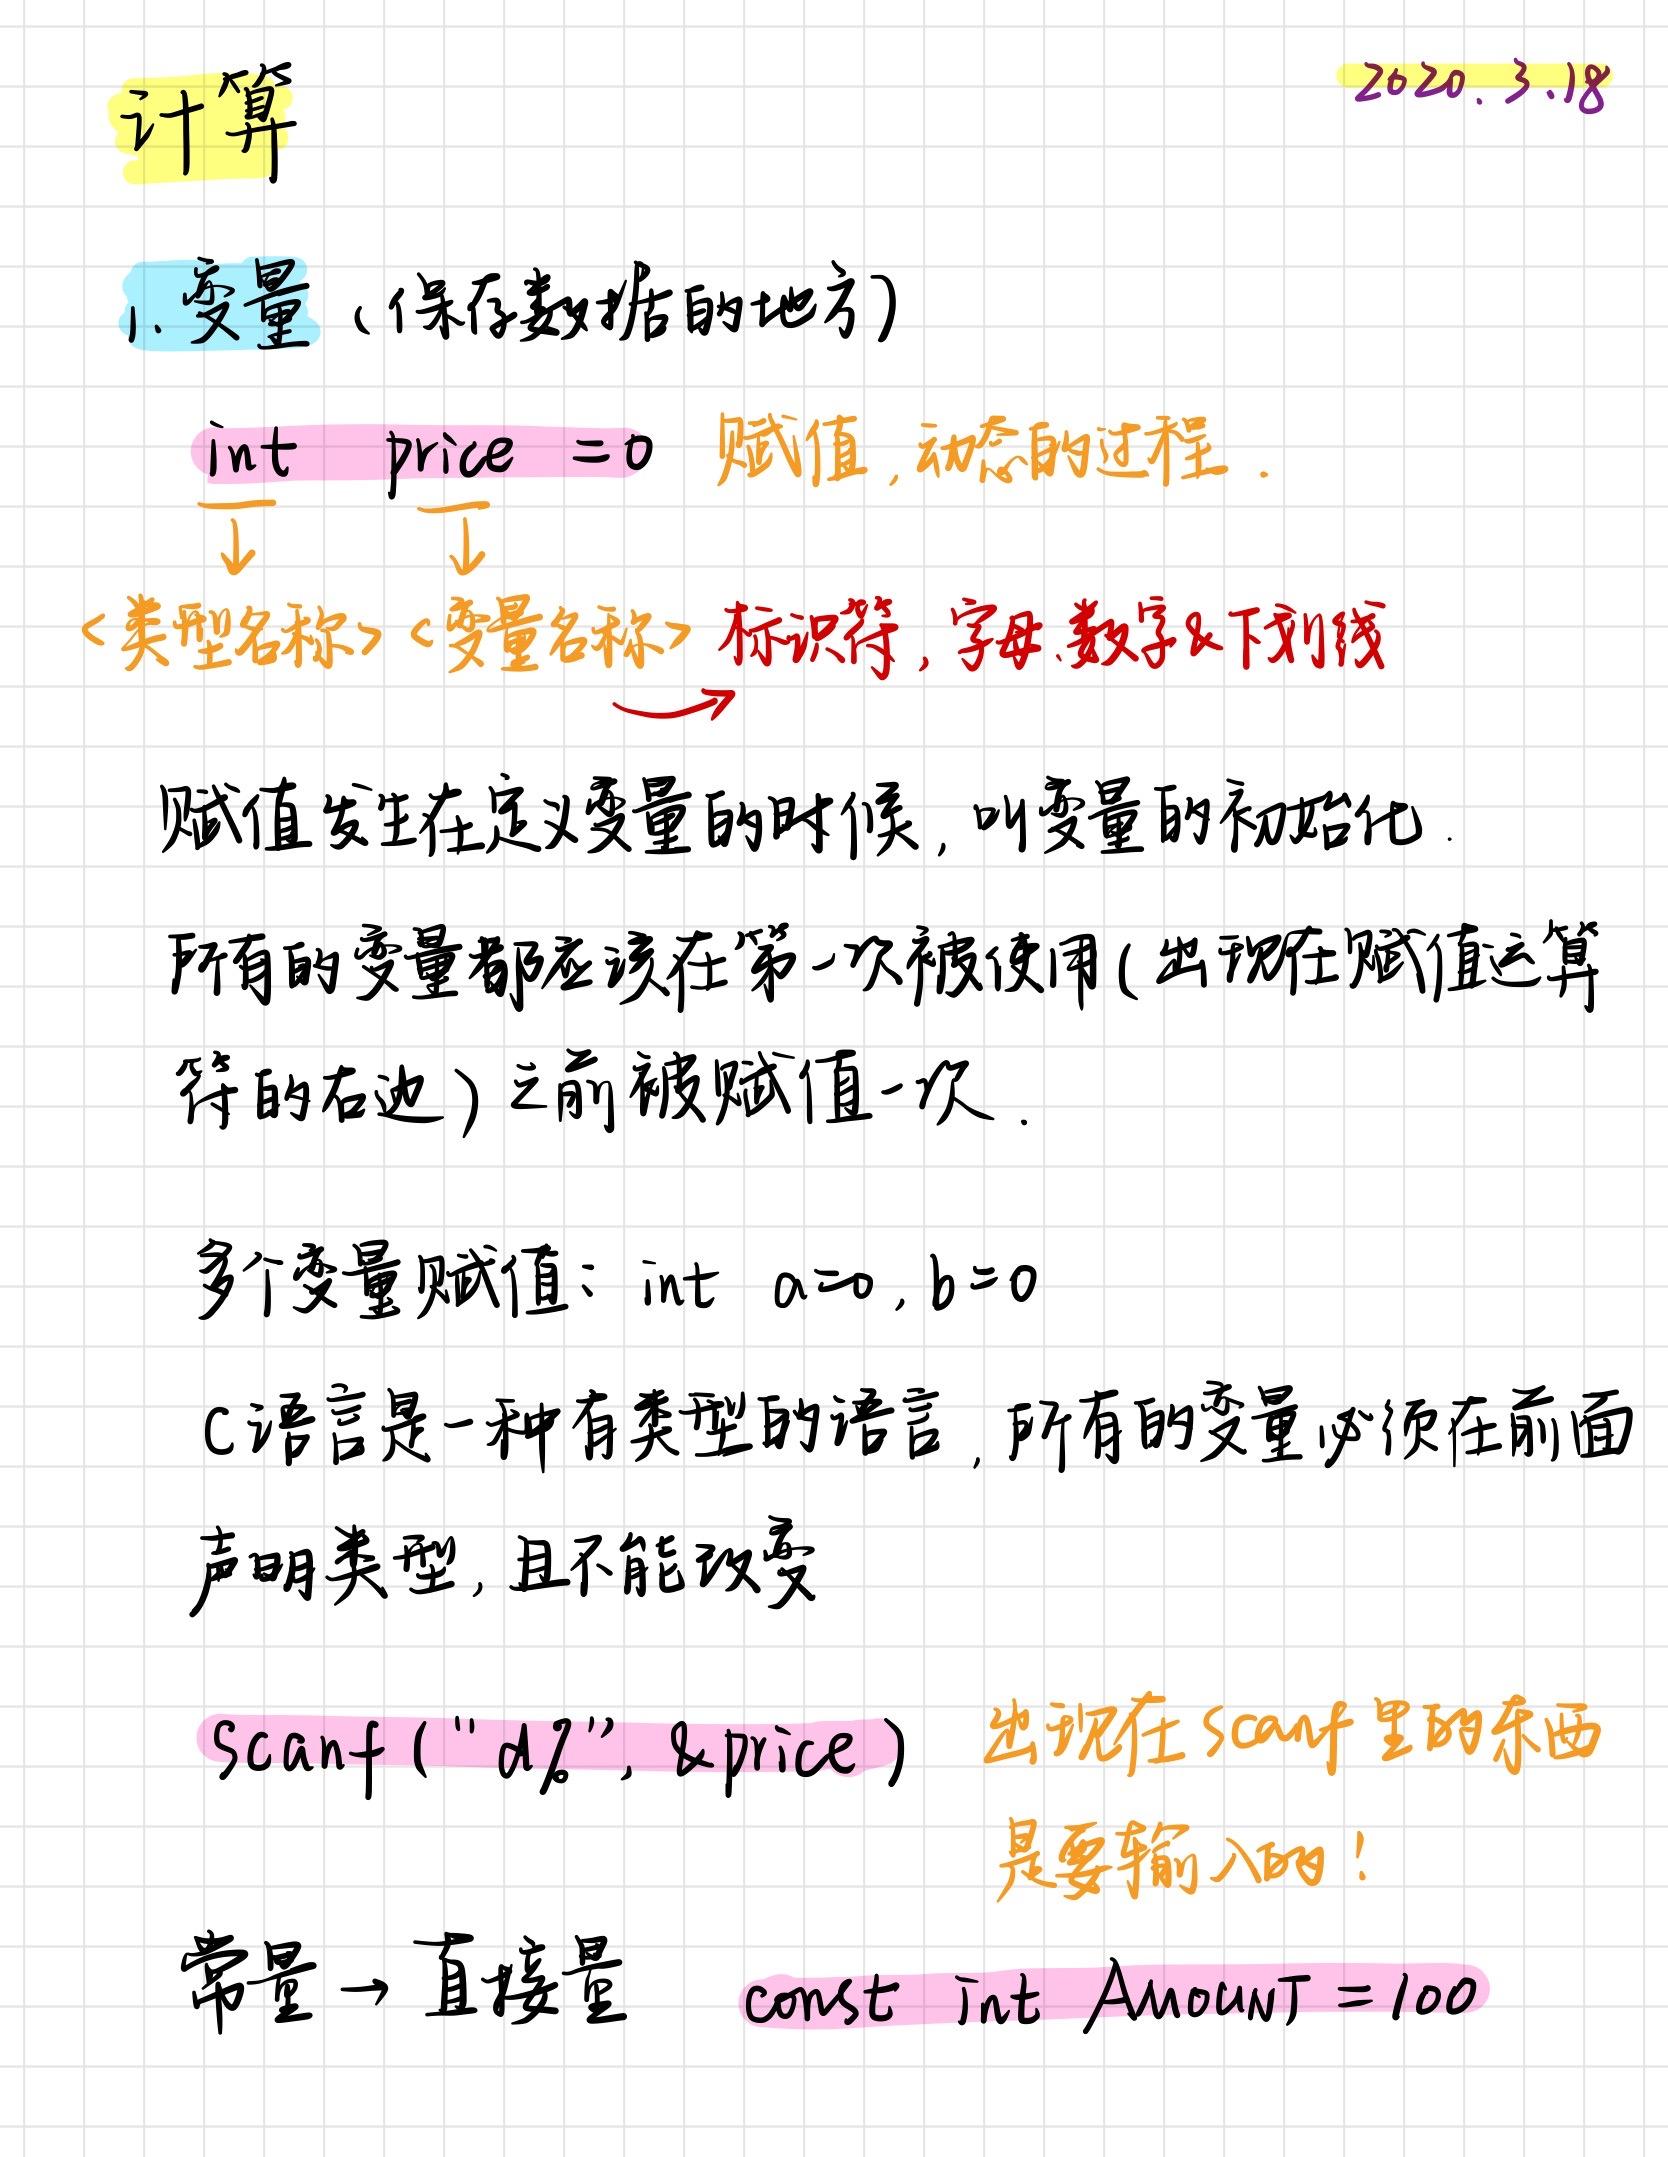 2020.3.18
计算
1.变量（保存数据的地方）
int price =0 赋值,动态的过程.
<类型名称> <变量名称> 标识符,字母、数字&下划线
赋值发生在定义变量的时候,叫变量的初始化.
所有的变量都应该在第一次被使用(出现在赋值运算
符的右边)之前被赋值一次.
多个变量赋值: int a=0,b=0
C语言是一种有类型的语言,所有的变量必须在前面
声明类型,且不能改变
scanf("d%", &price) 出现在scanf里的东西
是要输入的!
常量→直接量 const int AMOUNT=100